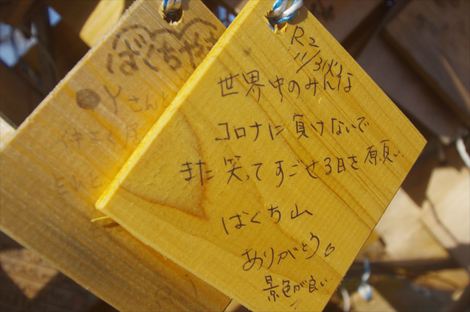 R2
11/3(火)
世界中のみんな
コロナに負けないで
また笑ってすごせる日を願い
ばくち山
ありがとう。
景色が良い
ばくち
Yさんと